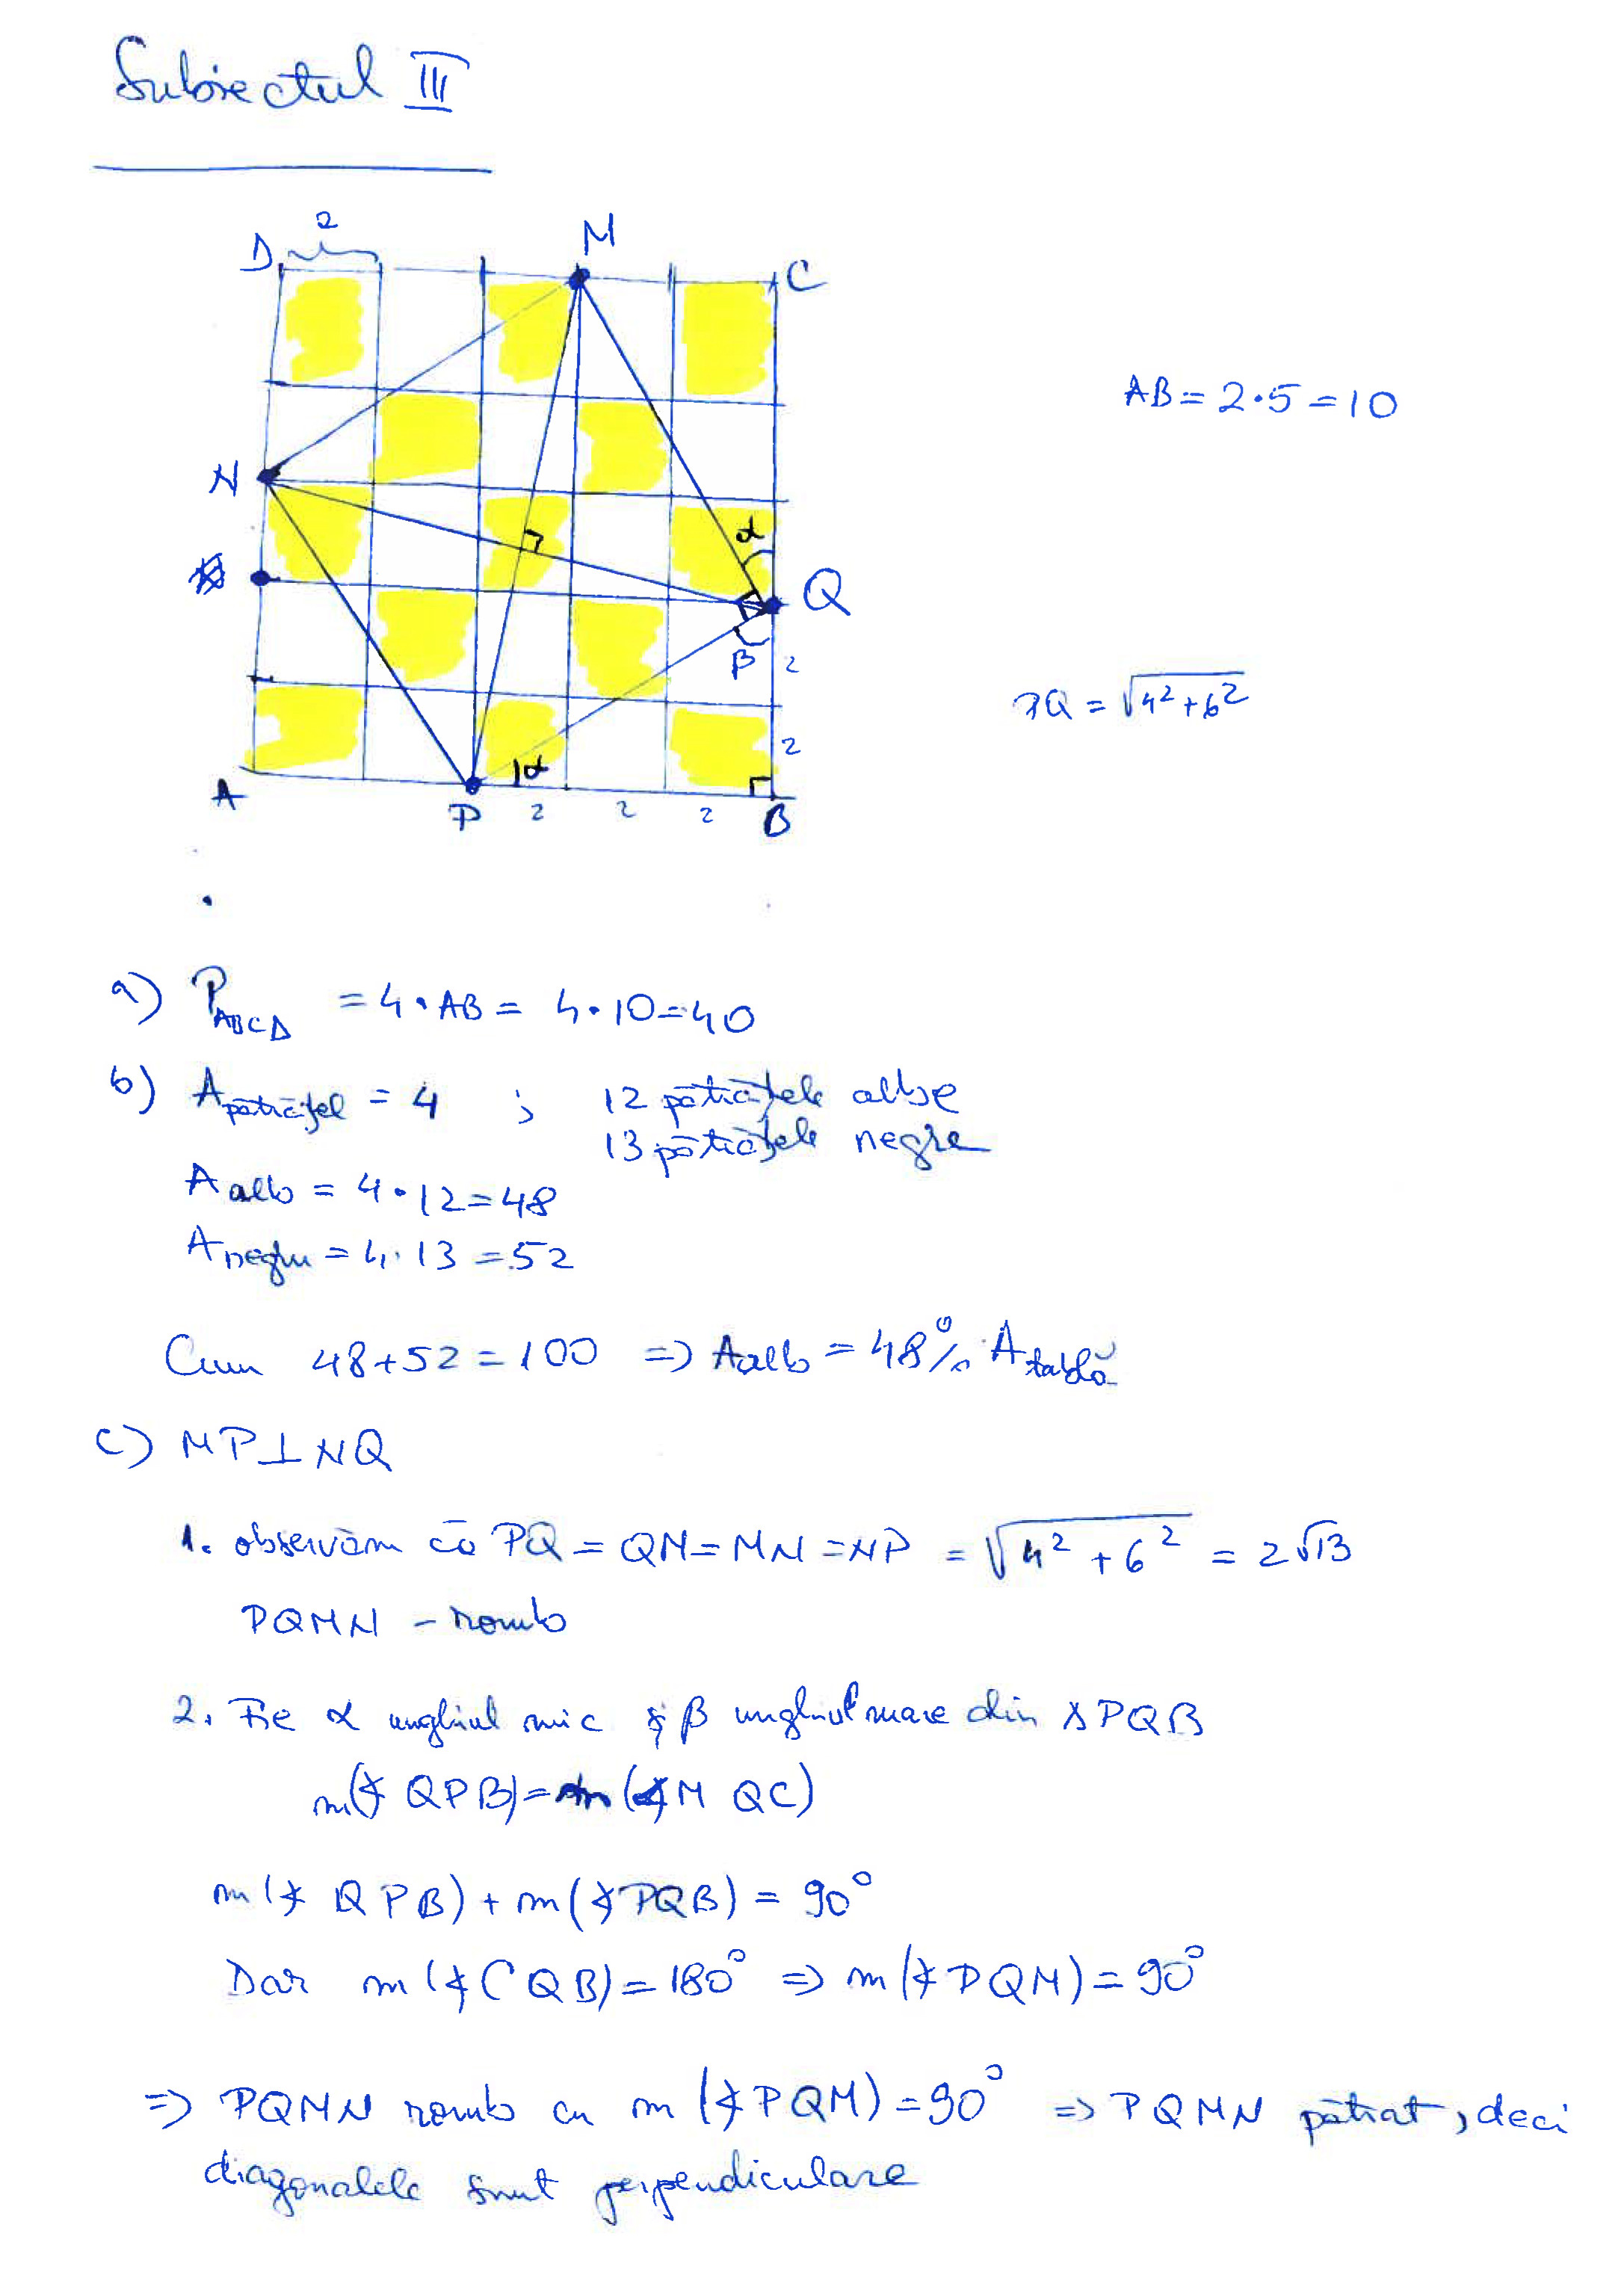 Subiectul III
2
D
M
C
AB = 2·5 = 10
N
α
Q
β
2
PQ = √4²+6²
2
α
A
P
2
2
2
B
a) P_ABCD = 4·AB = 4·10 = 40
b) A_pătrățel = 4 ; 12 pătrățele albe
13 pătrățele negre
A alb = 4·12 = 48
A negru = 4·13 = 52
Cum 48+52 = 100 => A alb = 48% A tablă
c) MP ⊥ NQ
1. observăm că PQ = QM = MN = NP = √4²+6² = 2√13
PQMN – romb
2. Fie α unghiul mic și β unghiul mare din ΔPQB
m(∢QPB) = m(∢MQC)
m(∢QPB) + m(∢PQB) = 90°
Dar m(∢CQB) = 180° => m(∢PQM) = 90°
=> PQMN romb cu m(∢PQM) = 90° => PQMN pătrat, deci
diagonalele sunt perpendiculare